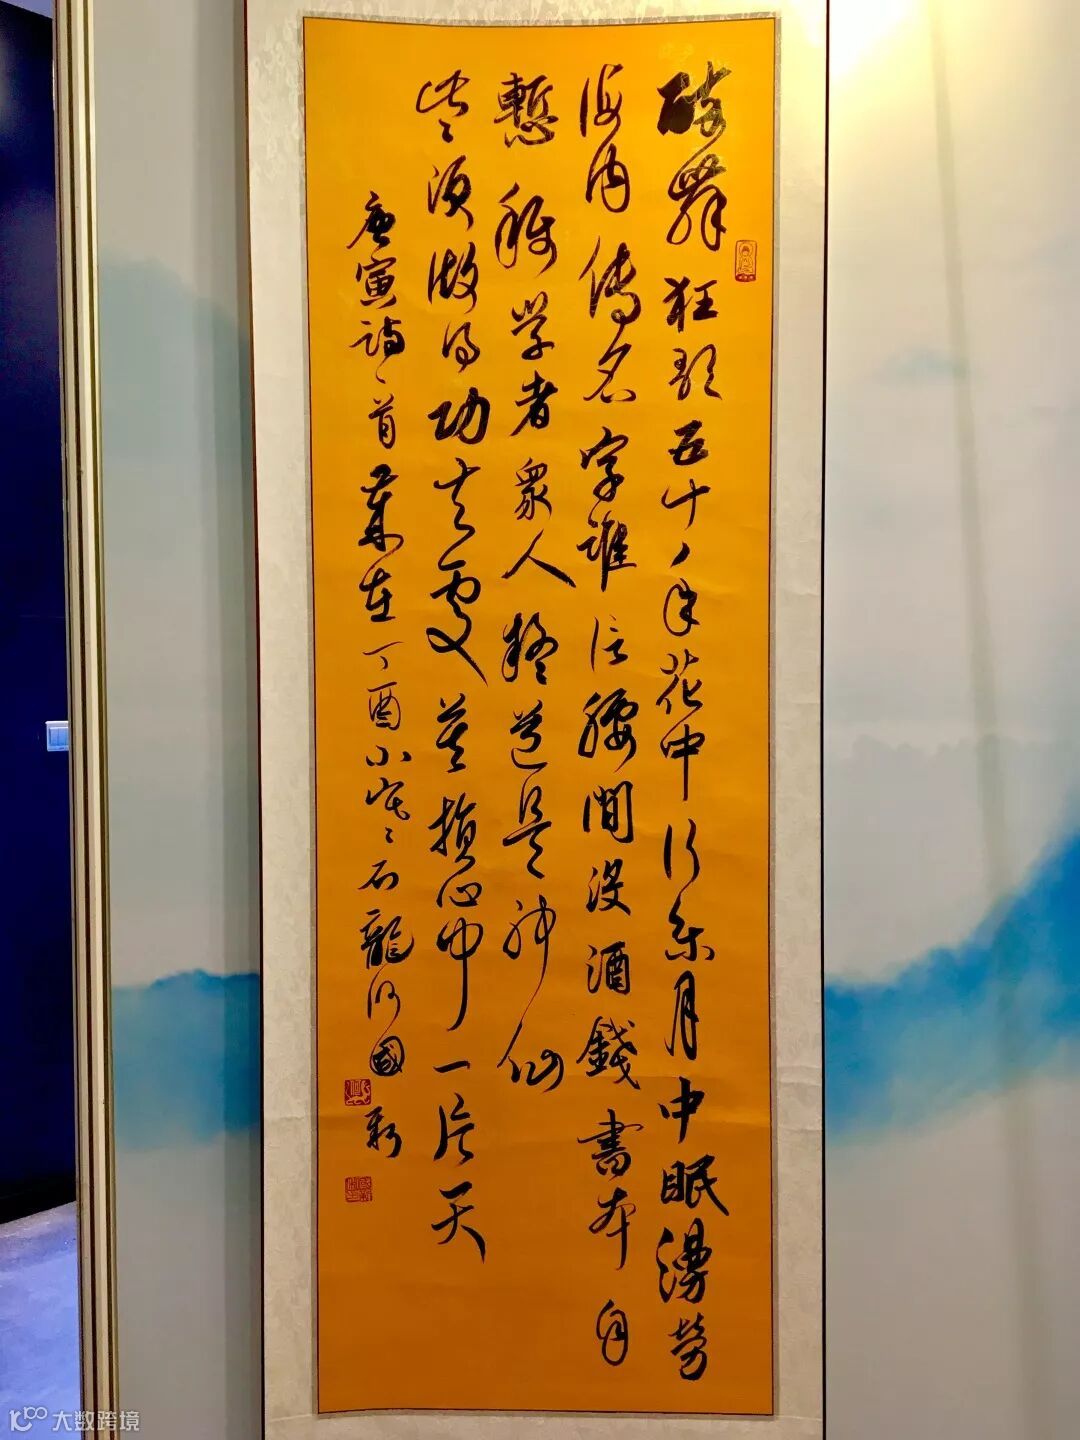 醉舞狂歌五十年花中行樂月中眠漫勞
海内傳名字誰信腰間没酒錢書本自
慙稱学者衆人疑道是神仙
些須做得功夫處莫損心中一片天
唐寅詩一首 丁酉小寒 石龍 國新
大数跨境